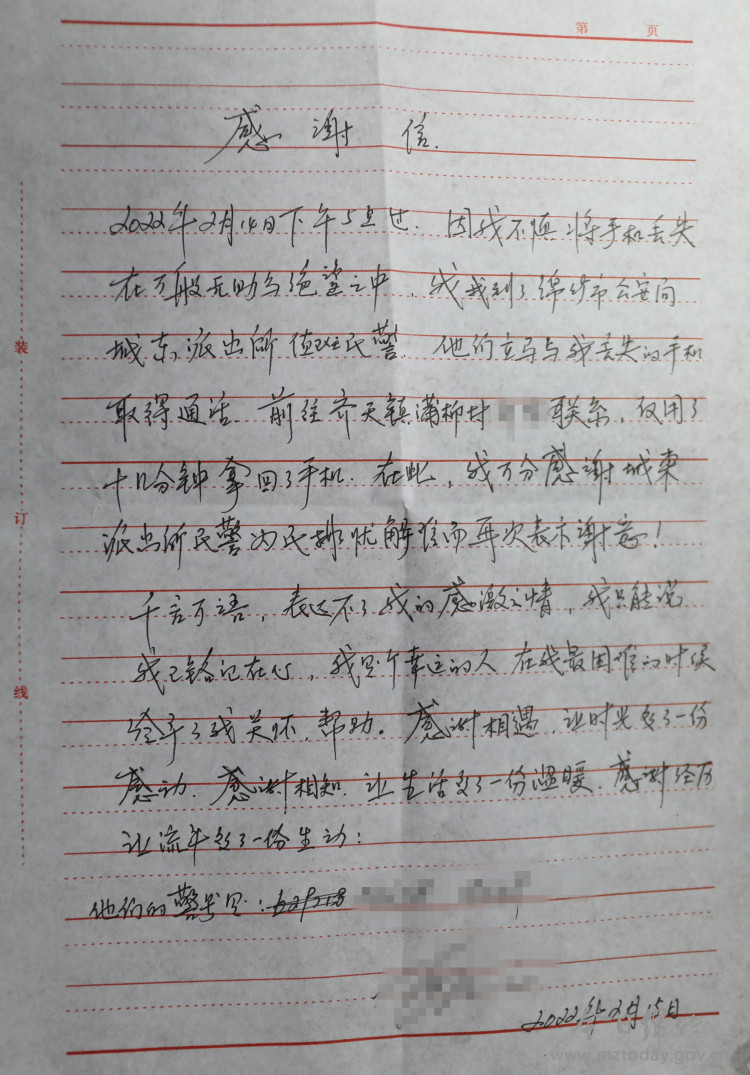 第 页
感谢信.
2022年2月14日下午5点过. 因我不慎将手机丢失
在万般无助与绝望之中,我找到了绵竹市公安局
城东派出所值班民警. 他们立马与我丢失的手机
取得通话 前往齐天镇满柳村 联系,仅用了
十几分钟拿回了手机. 在此,我万分感谢城东
派出所民警为民排忧解难而再次表示谢意!
千言万语,表达不了我的感激之情,我只能说
我已铭记在心,我是个幸运的人 在我最困难的时侯
给予了我关怀,帮助。感谢相遇,让时光多了一份
感动. 感谢相知. 让生活多了一份温暖. 感谢经历
让流年多了一份生动:
他们的警号是:
2022年2月15日
装
订
线
www.mztoday.gov.cn